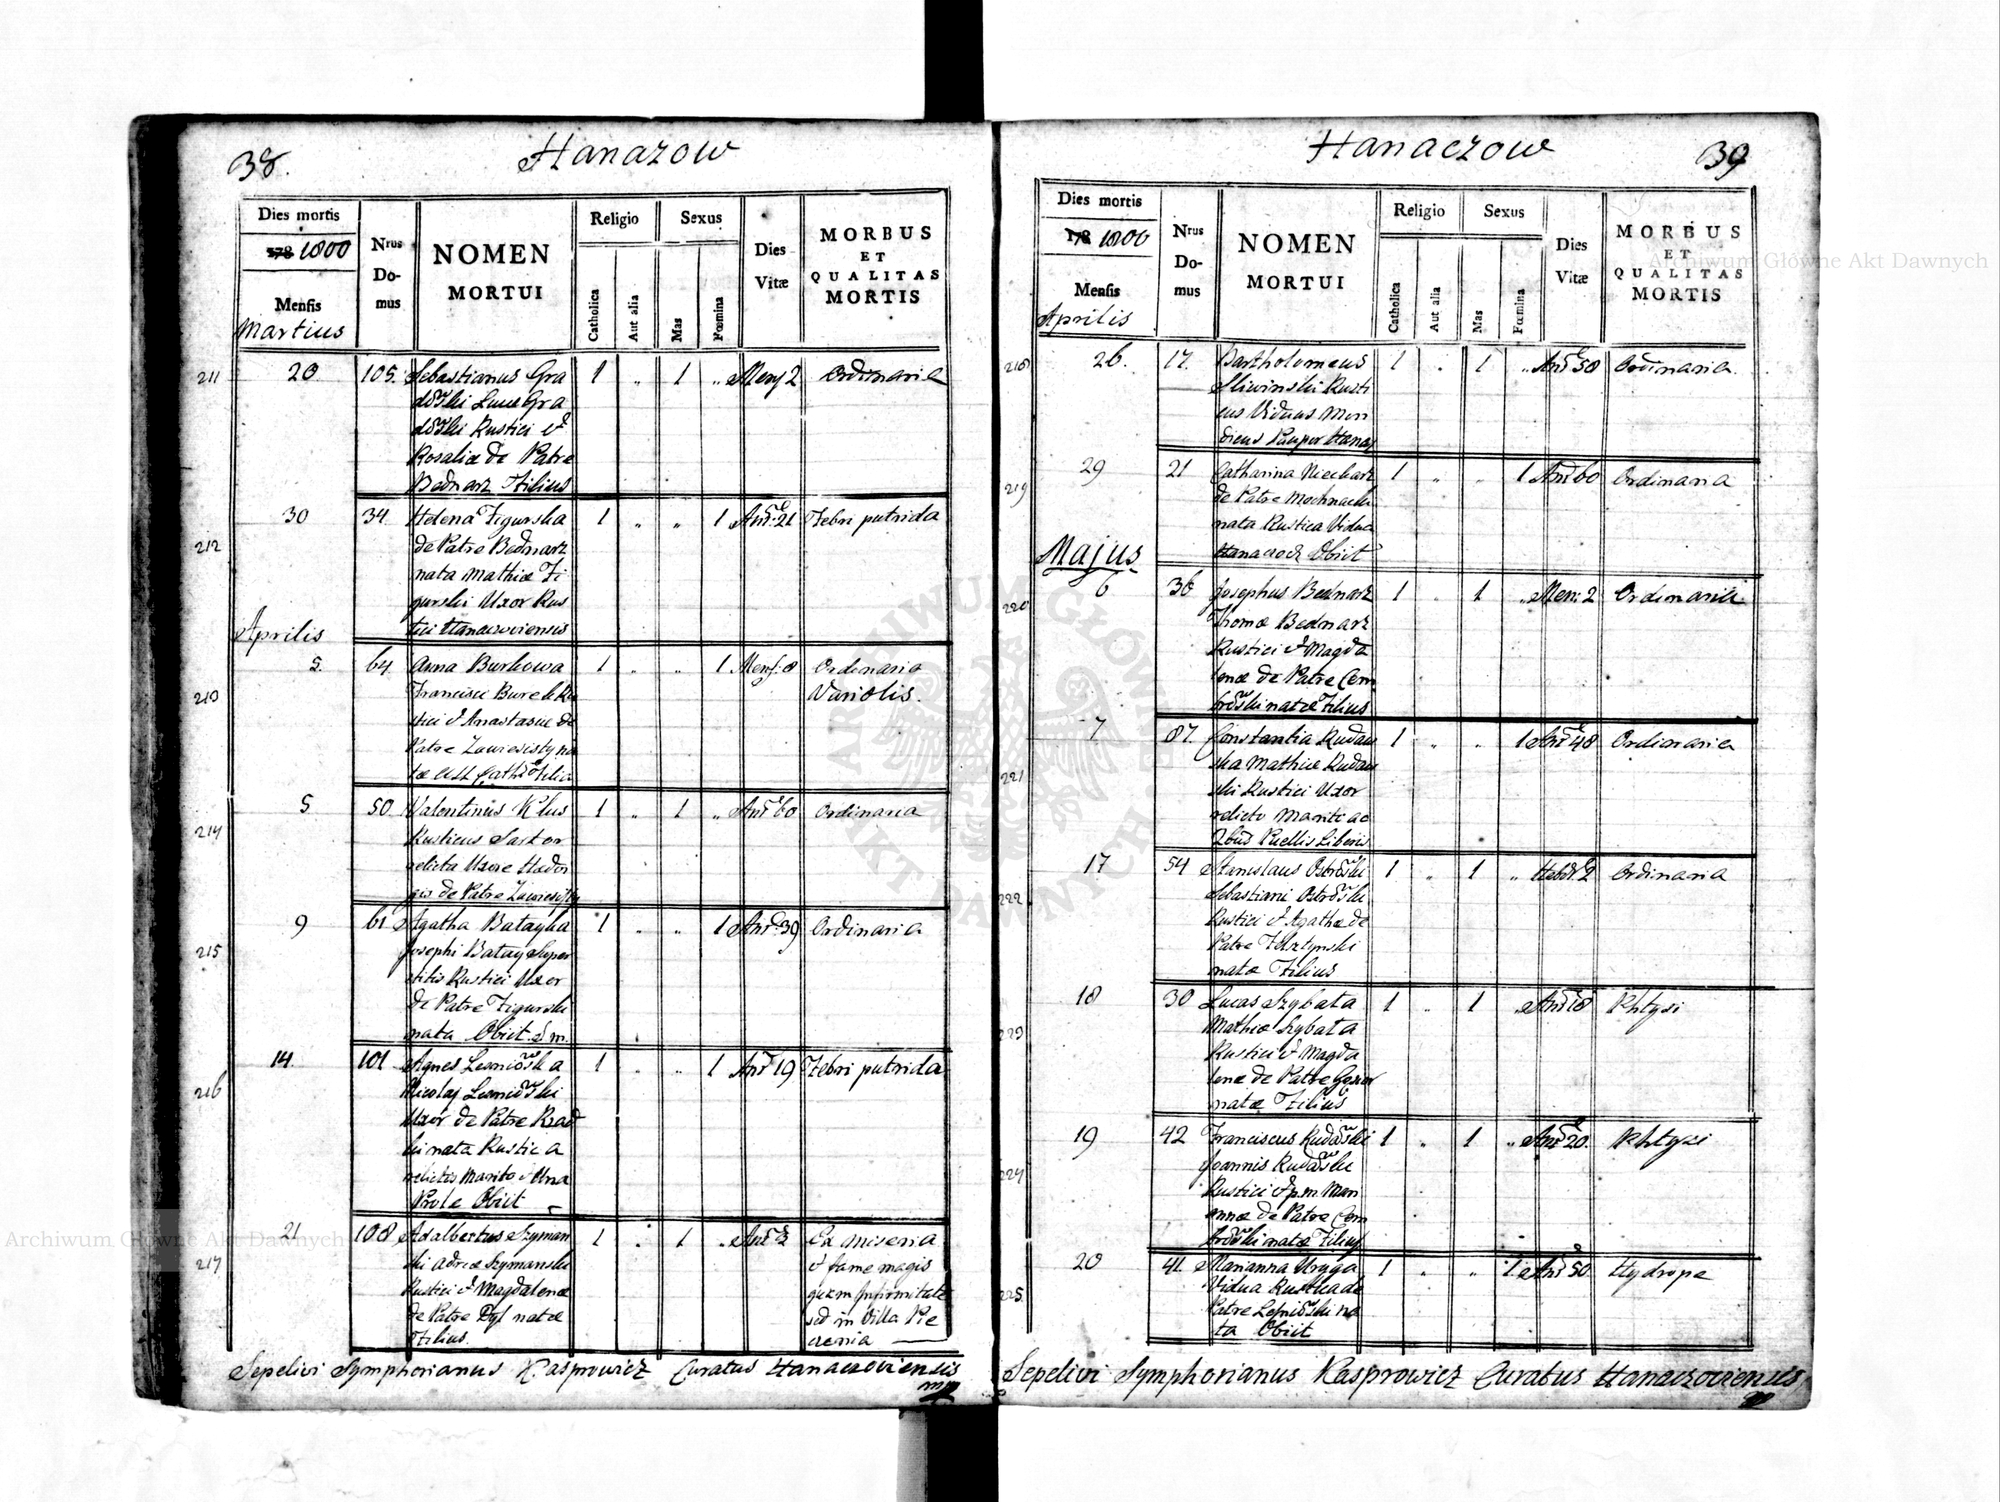 38.
Hanazow
Dies mortis
178 1800
Mensis
Martius
Nrus
Do-
mus
NOMEN
MORTUI
Religio
Catholica
Aut alia
Sexus
Mas
Fœmina
Dies
Vitæ
MORBUS
ET
QUALITAS
MORTIS
211 20 105. Sebastianus Gra 1 „ 1 „ Mens 2 Ordinaria
dowski Lucæ Gra
dowski Rustici et
Rosaliæ de Patre
Bednarz Filius
212 30 34 Helena Figurska 1 „ „ 1 Ann: 21 Febri putrida
de Patre Bednarz
nata Mathiæ Fi
gurski Uxor Rus
tici Hanaczoviensis
Aprilis
213 5. 64 Anna Burkowa 1 „ „ 1 Mens: 8 Ordinaria
Francisci Burek Ru Variolis.
stici et Anastasiæ de
Patre
Filia
214 5 50 Valentinus Klus 1 „ 1 „ Ann 60 Ordinaria
Rusticus Sartor
relicta Uxore Hedvi
gis de Patre
215 9 61 Agatha Batayka 1 „ „ 1 Ann: 39 Ordinaria
Josephi Batay Super
stitis Rustici Uxor
de Patre Figurski
nata Obiit
216 14. 101 Agnes Lesniowska 1 „ „ 1 Ann 19 Febri putrida
Nicolaj Lesniowski
Uxor de Patre Rzad
ki nata Rustica
relicto Marito et Una
Prole Obiit
217 21 108 Adalbertus Szyman 1 „ 1 „ Ann 3 Ex miseria
ski Szymanski et fame magis
Rustici et Magdalenæ quam Infirmitate
de Patre Dyl natæ sed in Villa Pie
Filius. cenia
Sepelivi Symphorianus Kasprowicz Curatus Hanaczoviensis
mp
Hanaczow
39
Dies mortis
178 1800
Mensis
Aprilis
Nrus
Do-
mus
NOMEN
MORTUI
Religio
Catholica
Aut alia
Sexus
Mas
Fœmina
Dies
Vitæ
MORBUS
ET
QUALITAS
MORTIS
218 26. 17. Bartholomeus 1 „ 1 „ Ann 58 Ordinaria.
Sliwinski Rusti
cus Viduus Men
dicus Pauper Hanacz
219 29 21 Catharina Niecharz 1 „ „ 1 Ann 60 Ordinaria
de Patre Mochnacki
nata Rustica Vidua
Obiit
Majus.
220 6 36 Josephus Bednarz 1 „ 1 „ Men: 2 Ordinaria
Thomæ Bednarz
Rustici et Magda
lenæ de Patre Cem
browski natæ Filius
221 7 87. Constantia Rudaw 1 „ „ 1 Ann 48 Ordinaria
ska Mathiæ Rudaw
ski Rustici Uxor
relicto Marito ac
2bus Puellis Liberis
222 17 54 Stanislaus Ostrowski 1 „ 1 „ Hebd. 2 Ordinaria
Sebastiani Ostrowski
Rustici et Agathæ de
Patre Felsztynski
natæ Filius
223 18 30 Lucas Szybata 1 „ 1 „ Ann 18 Phtysi
Mathiæ Szybata
Rustici et Magda
lenæ de Patre
natæ Filius
224 19 42 Franciscus Rudawski 1 „ 1 „ Ann 20. Phtysi
Joannis Rudawski
Rustici et p.m. Mari
annæ de Patre Cem
browski natæ Filius
225. 20 41. Marianna Uryga 1 „ „ 1 Ann 50. Hydrope
Vidua Rustica de
Patre Lesniowski na
ta Obiit
Sepelivi Symphorianus Kasprowicz Curatus Hanaczoviensis
Archiwum Główne Akt Dawnych
Archiwum Główne Akt Dawnych
ARCHIWUM GŁÓWNE AKT DAWNYCH